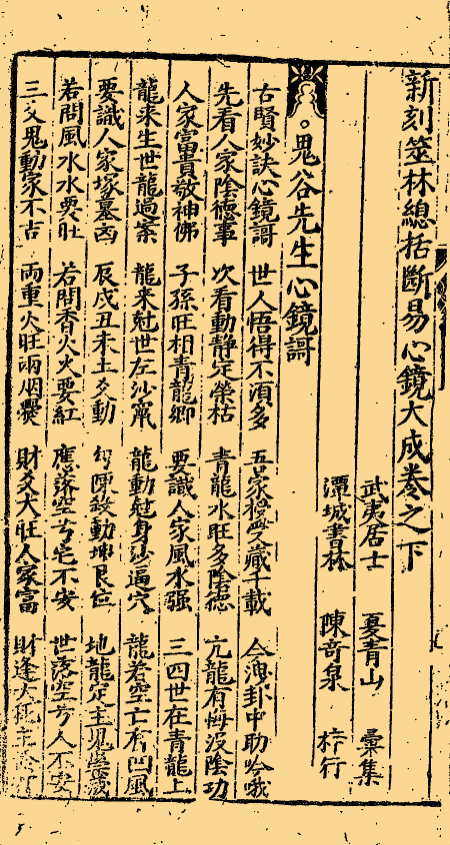 新刻筮林總括斷易心鏡大成卷之下
武夷居士 夏青山 彙集
潭城書林 陳奇泉 梓行
鬼谷先生心鏡謌
古賢妙訣心鏡謌 世人悟得不須多 吾家稳受藏千載 今洩卦中助吟哦
先看人家陰德事 次看動靜定榮枯 青龍水旺多陰德 亢龍有悔沒陰功
人家富貴敬神佛 子孫旺相青龍鄉 要識人家風水强 三四世在青龍上
龍來生世龍過案 龍來尅世左沙窜 龍動尅身沙逼穴 龍若空亡有凹風
要識人家塚墓凶 辰戌丑未土爻動 勾陳殺動坤艮位 地龍定主見
若問風水水要旺 若問香火火要紅 應落空亡宅不安 世落空亡人不安
三爻鬼動家不吉 兩重火旺兩烟爨 財爻大旺人家富 財逢大